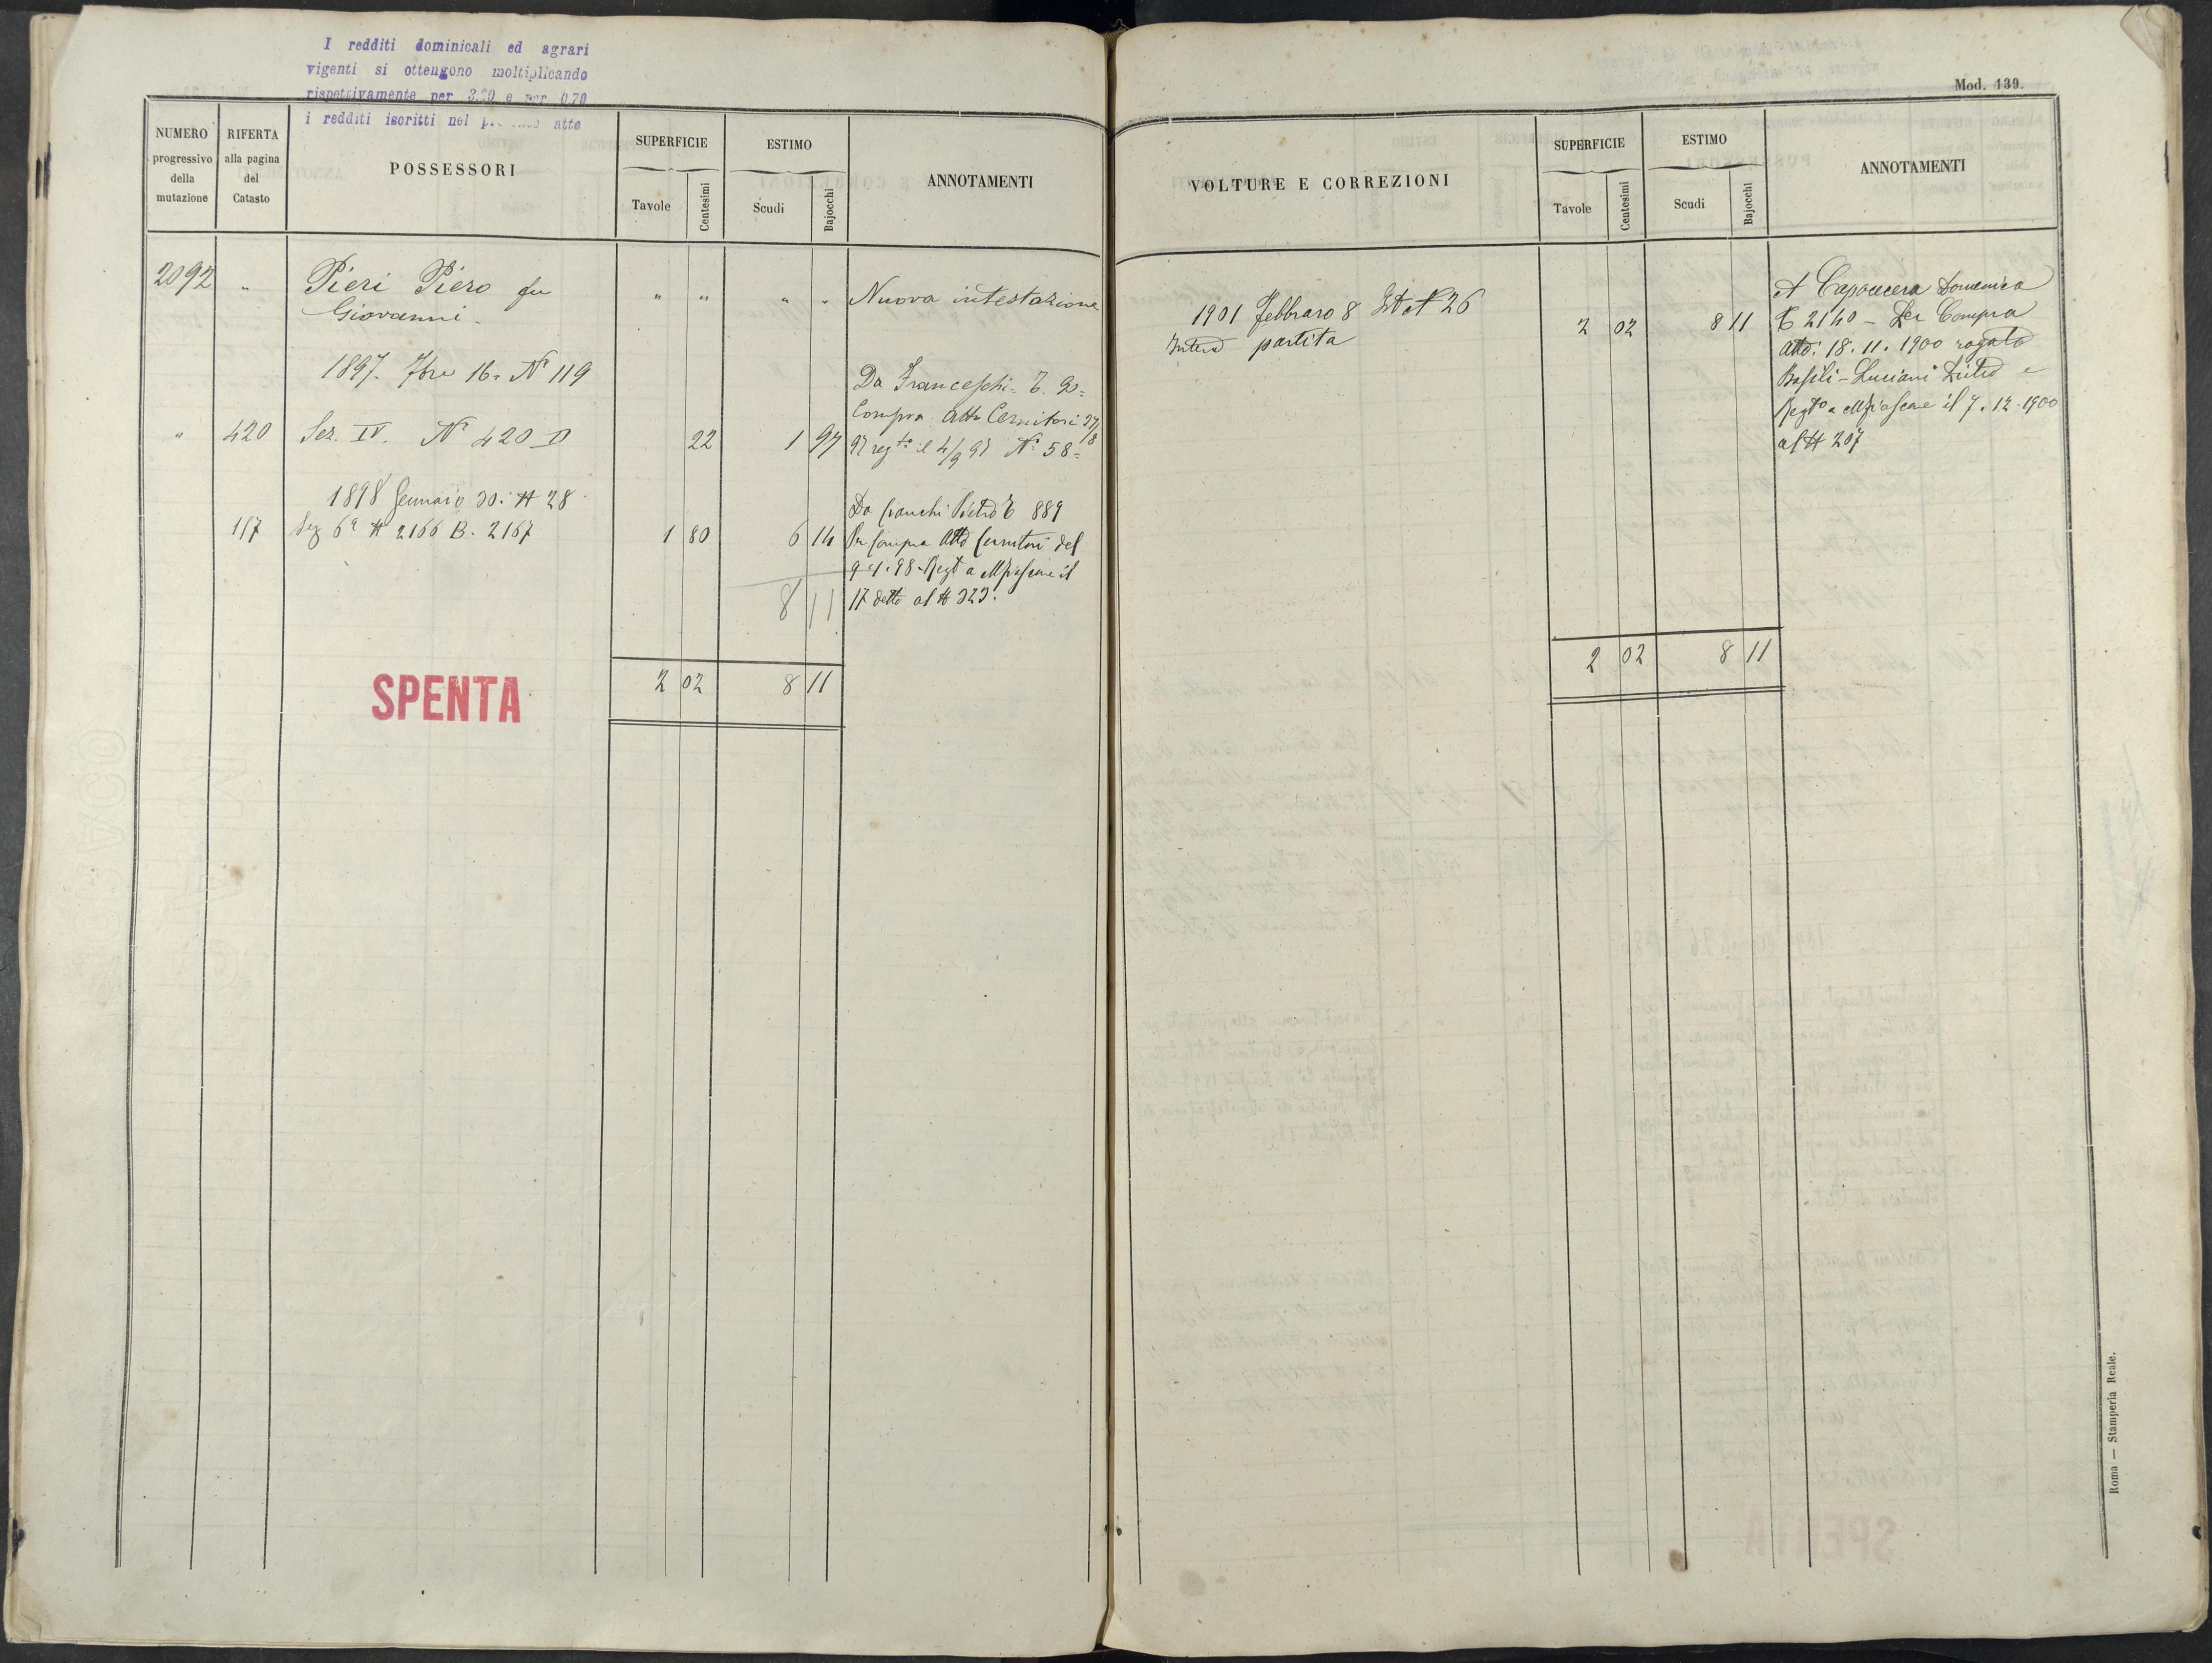 I redditi dominicali ed agrari
vigenti si ottengono moltiplicando
rispettivamente per 3.20 e per 0.70
i redditi iscritti nel atto
NUMERO
progressivo
della
mutazione
RIFERTA
alla pagina
del
Catasto
POSSESSORI
SUPERFICIE
Tavole
Centesimi
ESTIMO
Scudi
Bajocchi
ANNOTAMENTI
2092 " Pieri Piero fu " " " " Nuova intestazione
Giovanni
1897. 7bre 16. Nº 119
Da Franceschi
Compra. Atto Cernitori 27/8
" 420 Sez. IV. Nº 420 D 22 1 97 97 regto il 4/9 97 Nº 58=
1898 Gennaio 30. N 28
Da Cianchi Pietro 889
117 Sez 6a N 2166 B. 2167 1 80 6 14 Per compra Atto Cernitori del
9.1.98 Regt a il
8 11 17 detto al N 323.
2 02 8 11
SPENTA
Mod. 139.
VOLTURE E CORREZIONI
SUPERFICIE
Tavole
Centesimi
ESTIMO
Scudi
Bajocchi
ANNOTAMENTI
1901 Febbraro 8 N 26
Intera partita 2 02 8 11
A Domenica
2140 - Per Compra
Atto: 18.11.1900 rogato
Basili-Luciani Pietro e
Regto a il 7.12.1900
al N 207
2 02 8 11
Roma — Stamperia Reale.